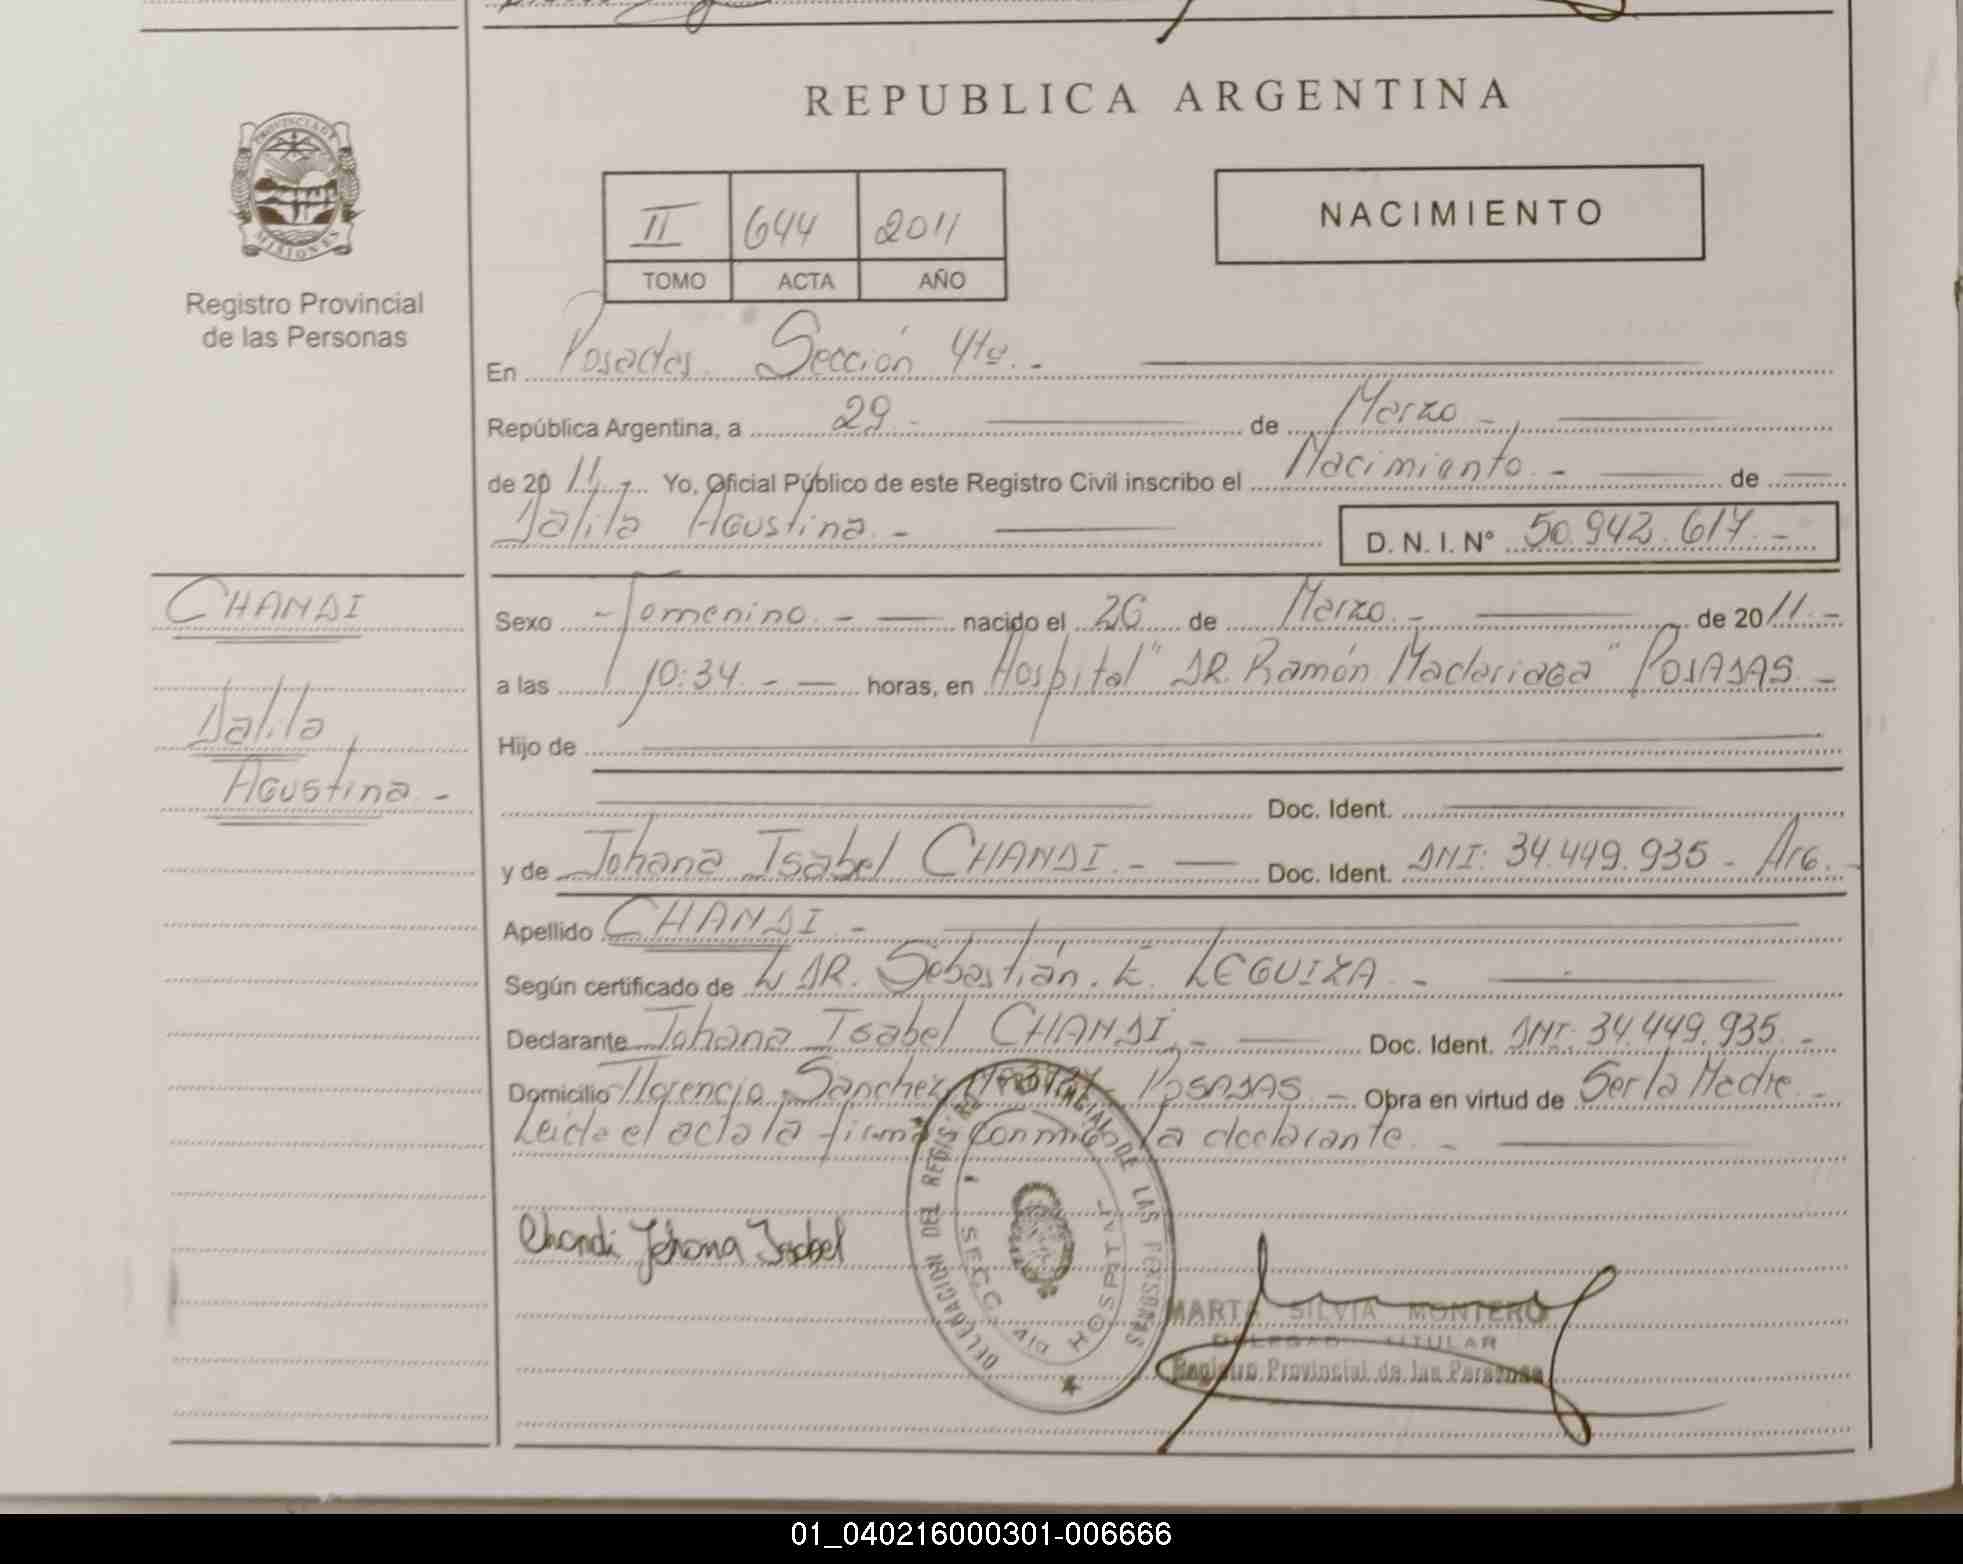 REPUBLICA ARGENTINA
PROVINCIA DE
MISIONES
Registro Provincial
de las Personas
II 644 2011
TOMO ACTA AÑO
NACIMIENTO
En Posadas. Sección 4ta. -
República Argentina, a 29 - de Marzo -
de 20 11. - Yo, Oficial Público de este Registro Civil inscribo el Nacimiento. - de
Dalila Agustina. - D. N. I. N° 50.942.617. -
CHANDI
Dalila
Agustina -
Sexo - Femenino. - nacido el 26 de Marzo. - de 20 11. -
a las 10:34. - horas, en Hospital "DR. Ramón Madariaga" POSADAS. -
Hijo de
Doc. Ident.
y de Johana Isabel CHANDI. - Doc. Ident. DNI: 34.449.935 - Arg. -
Apellido CHANDI -
Según certificado de DR. Sebastián. E. LEGUIZA. -
Declarante Johana Isabel CHANDI. - Doc. Ident. DNI: 34.449.935. -
Domicilio Florencio Sanchez POSADAS. - Obra en virtud de Ser la Madre. -
Leida el acta la firma conmigo la declarante. -
Chandi Johana Isabel
DELEGACION DEL REGISTRO PROVINCIAL DE LAS PERSONAS
SECC. HOSPITAL
MARTA SILVIA MONTERO
DELEGADA TITULAR
Registro Provincial de las Personas
01_040216000301-006666